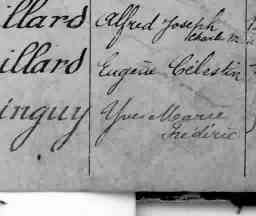 illard Alfred Joseph
Charles M
illard Eugène Célestin
inguy Yves Marie
Frédéric